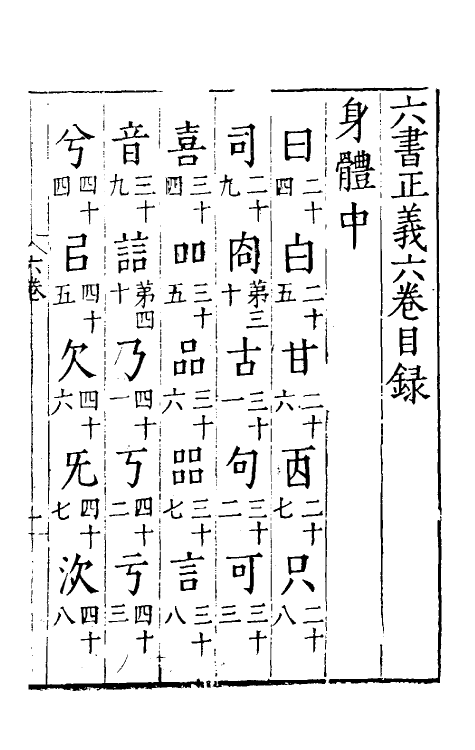 六書正義六卷目録
身體中
曰二十四 白二十五 甘二十六 㐁二十七 只二十八
司二十九 㕯第三十 古三十一 句三十二 可三十三
喜三十四 吅三十五 品三十六 㗊三十七 言三十八
音三十九 誩第四十 乃四十一 丂四十二 亏四十三
兮四十四 㠯四十五 欠四十六 旡四十七 㳄四十八
六卷